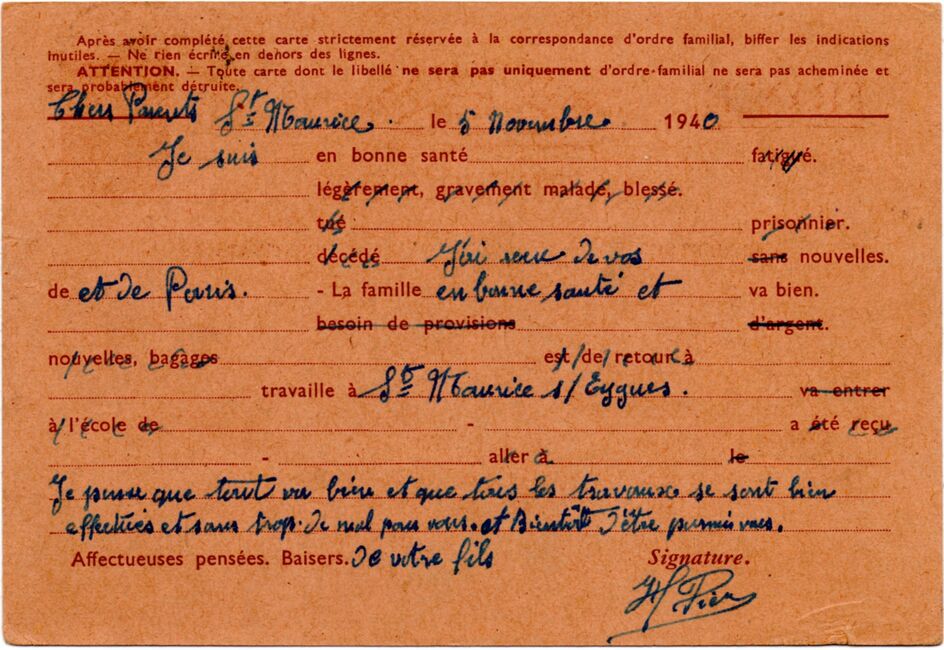 Après avoir complété cette carte strictement réservée à la correspondance d'ordre familial, biffer les indications
inutiles. — Ne rien écrire en dehors des lignes.
ATTENTION. — Toute carte dont le libellé ne sera pas uniquement d'ordre familial ne sera pas acheminée et
sera probablement détruite.
Chers Parents St Maurice. le 5 Novembre 1940
Je suis en bonne santé fatigué.
légèrement, gravement malade, blessé.
tué prisonnier.
décédé J'ai reçu de vos sans nouvelles.
de et de Paris. - La famille en bonne santé et va bien.
besoin de provisions d'argent.
nouvelles, bagages est de retour à
travaille à St Maurice s/Eygues. va entrer
à l'école de - a été reçu
- aller à le
Je pense que tout va bien et que tous les travaux se sont bien
effectués et sans trop de mal pour vous. et Bientôt d'être parmi vous.
Affectueuses pensées. Baisers. De votre fils Signature.